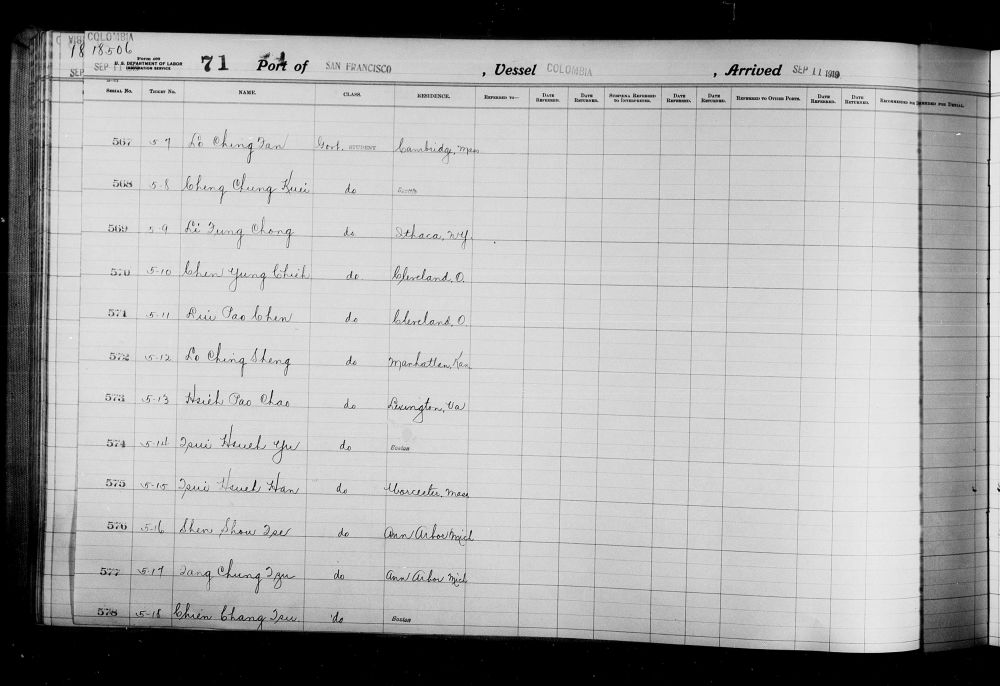 COLOMBIA
18 18506
SEP 11
Form 499
U. S. DEPARTMENT OF LABOR
IMMIGRATION SERVICE
71 Port of SAN FRANCISCO , Vessel COLOMBIA , Arrived SEP 11 1919
SERIAL NO. TICKET NO. NAME. CLASS. RESIDENCE. REFERRED TO— DATE REFERRED. DATE RETURNED. SUBPENA REFERRED TO INTERPRETER. DATE REFERRED. DATE RETURNED. REFERRED TO OTHER PORTS. DATE REFERRED. DATE RETURNED. RECOMMENDED FOR DENIAL.
567 5-7 Lo Ching Tan Govt. STUDENT Cambridge, Mass
568 5-8 Cheng Chung Kuei do
569 5-9 Li Fung Chong do Ithaca, N.Y.
570 5-10 Chen Yung Chieh do Cleveland, O.
571 5-11 Liu Pao Chen do Cleveland, O.
572 5-12 Lo Ching Sheng do Manhattan, Kan
573 5-13 Hsieh Pao Chao do Lexington, Va
574 5-14 Tsui Hsueh Yu do Boston
575 5-15 Tsui Hsueh Han do Worcester, Mass
576 5-16 Shen Shou Tse do Ann Arbor Mich
577 5-17 Tang Chung Tzu do Ann Arbor Mich
578 5-18 Chien Chang Tsu do Boston